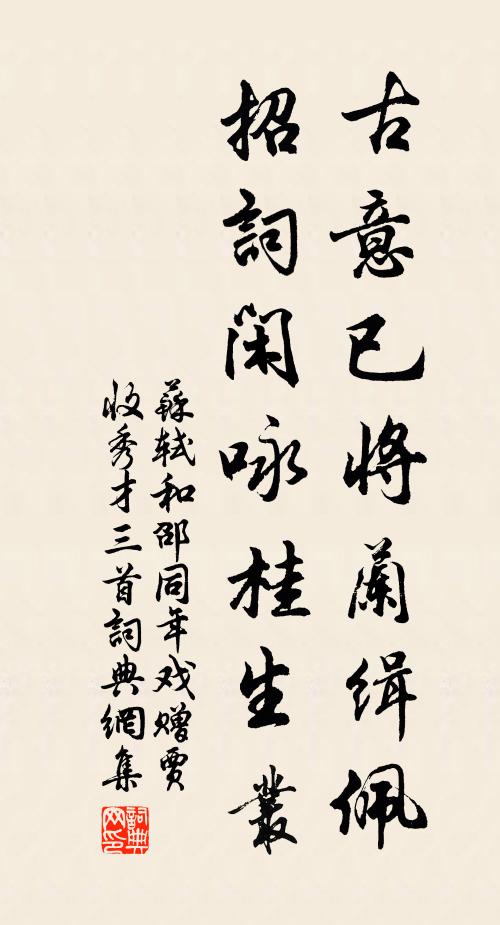 古意已將蘭緝佩
招詞閑咏桂生叢
蘇軾和邵同年戏赠賈
收秀才三首詞典網集
詞典
网印